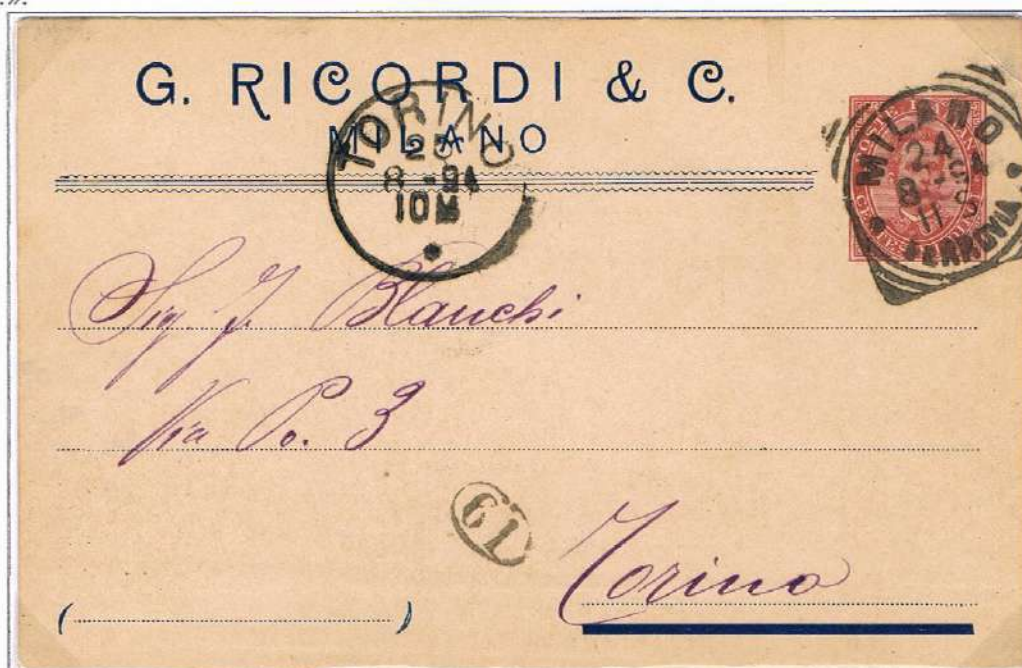 G. RICORDI & C.
MILANO
TORINO
25
8-94
10M
MILANO
24
8
11 S
FERROVIA
Sig. J. Blanchi
Via Po. 3
61
Torino
( )